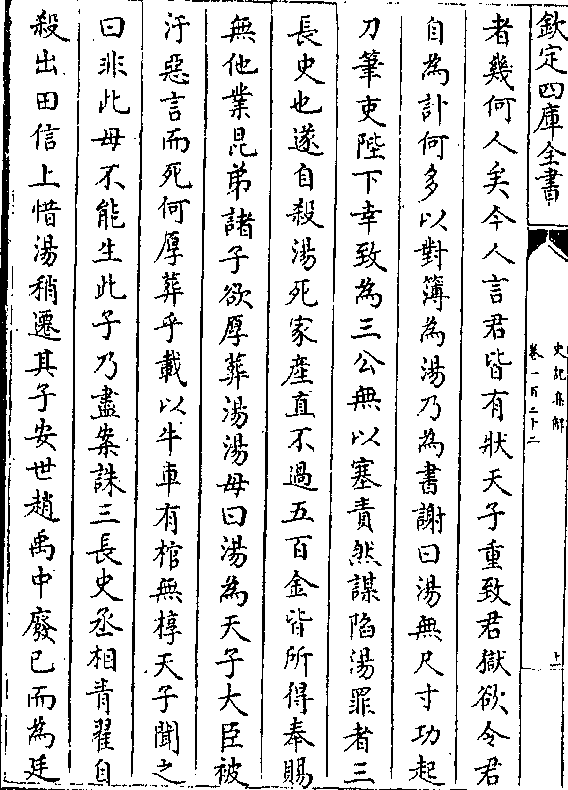 欽定四庫全書
史記集解
卷一百二十二
上
者幾何人矣今人言君皆有狀天子重致君獄欲令君
自為計何多以對簿為湯乃為書謝曰湯無尺寸功起
刀筆吏陛下幸致為三公無以塞責然謀陷湯罪者三
長史也遂自殺湯死家產直不過五百金皆所得奉賜
無他業昆弟諸子欲厚葬湯湯母曰湯為天子大臣被
汙惡言而死何厚葬乎載以牛車有棺無椁天子聞之
曰非此母不能生此子乃盡案誅三長史丞相青翟自
殺出田信上惜湯稍遷其子安世趙禹中廢已而為廷